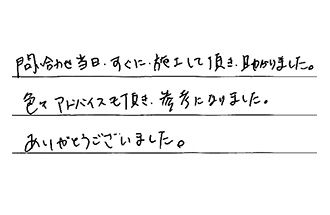 問い合わせ当日、すぐに施工して頂き、助かりました。
色々アドバイスも頂き、参考になりました。
ありがとうございました。